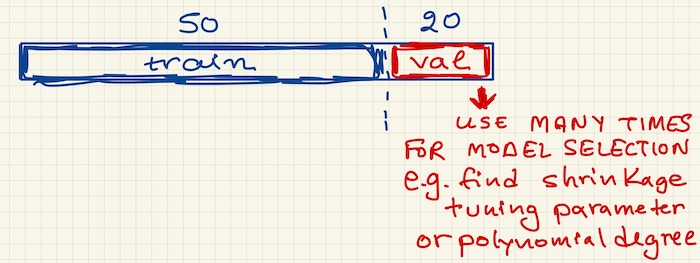 50 20
train val
USE MANY TIMES
FOR MODEL SELECTION
e.g. find shrinkage
tuning parameter
or polynomial degree